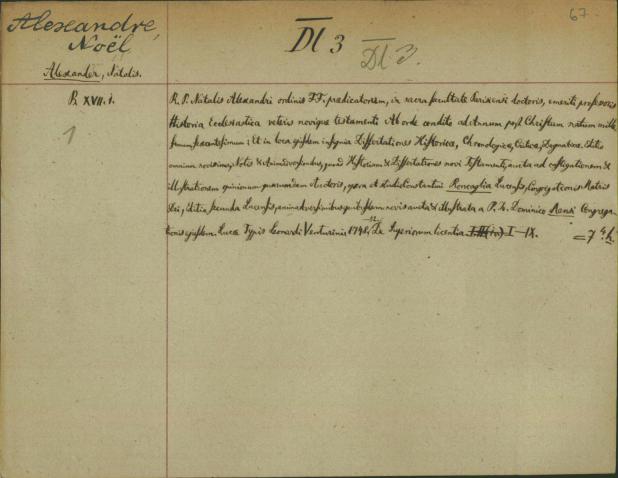 Alexandre,
Noël
Alexander, Natalis.
Dl 3
Dl 3.
67
R. XVII. 1.
1
R. P. Natalis Alexandri ordinis FF. praedicatorum, in sacra facultate Parisiensi doctoris, emeriti professoris
Historia Ecclesiastica veteris novique testamenti Ab orbe condito ad Annum post Christum natum mille-
simum sexcentesimum; Et in loca ejusdem insignia Dissertationes Historicae, Chronologicae, Criticae, Dogmaticae. Editio
omnium novissima, Notis & Animadversionibus, quoad Historiam & Dissertationes novi Testamenti, aucta ad castigationem &
illustrationem opinionum quarumdam Auctoris, opera et studio Constantini Roncaglia Lucensis, Congregationis Matris
Dei, Editio secunda Lucensis, animadversionibus itidem novis aucta & illustrata a P. Dominico Mansi Congrega-
tionis ejusdem. Lucae Typis Leonardi Venturini 1748, Superiorum licentia I-IX. = 7 k.